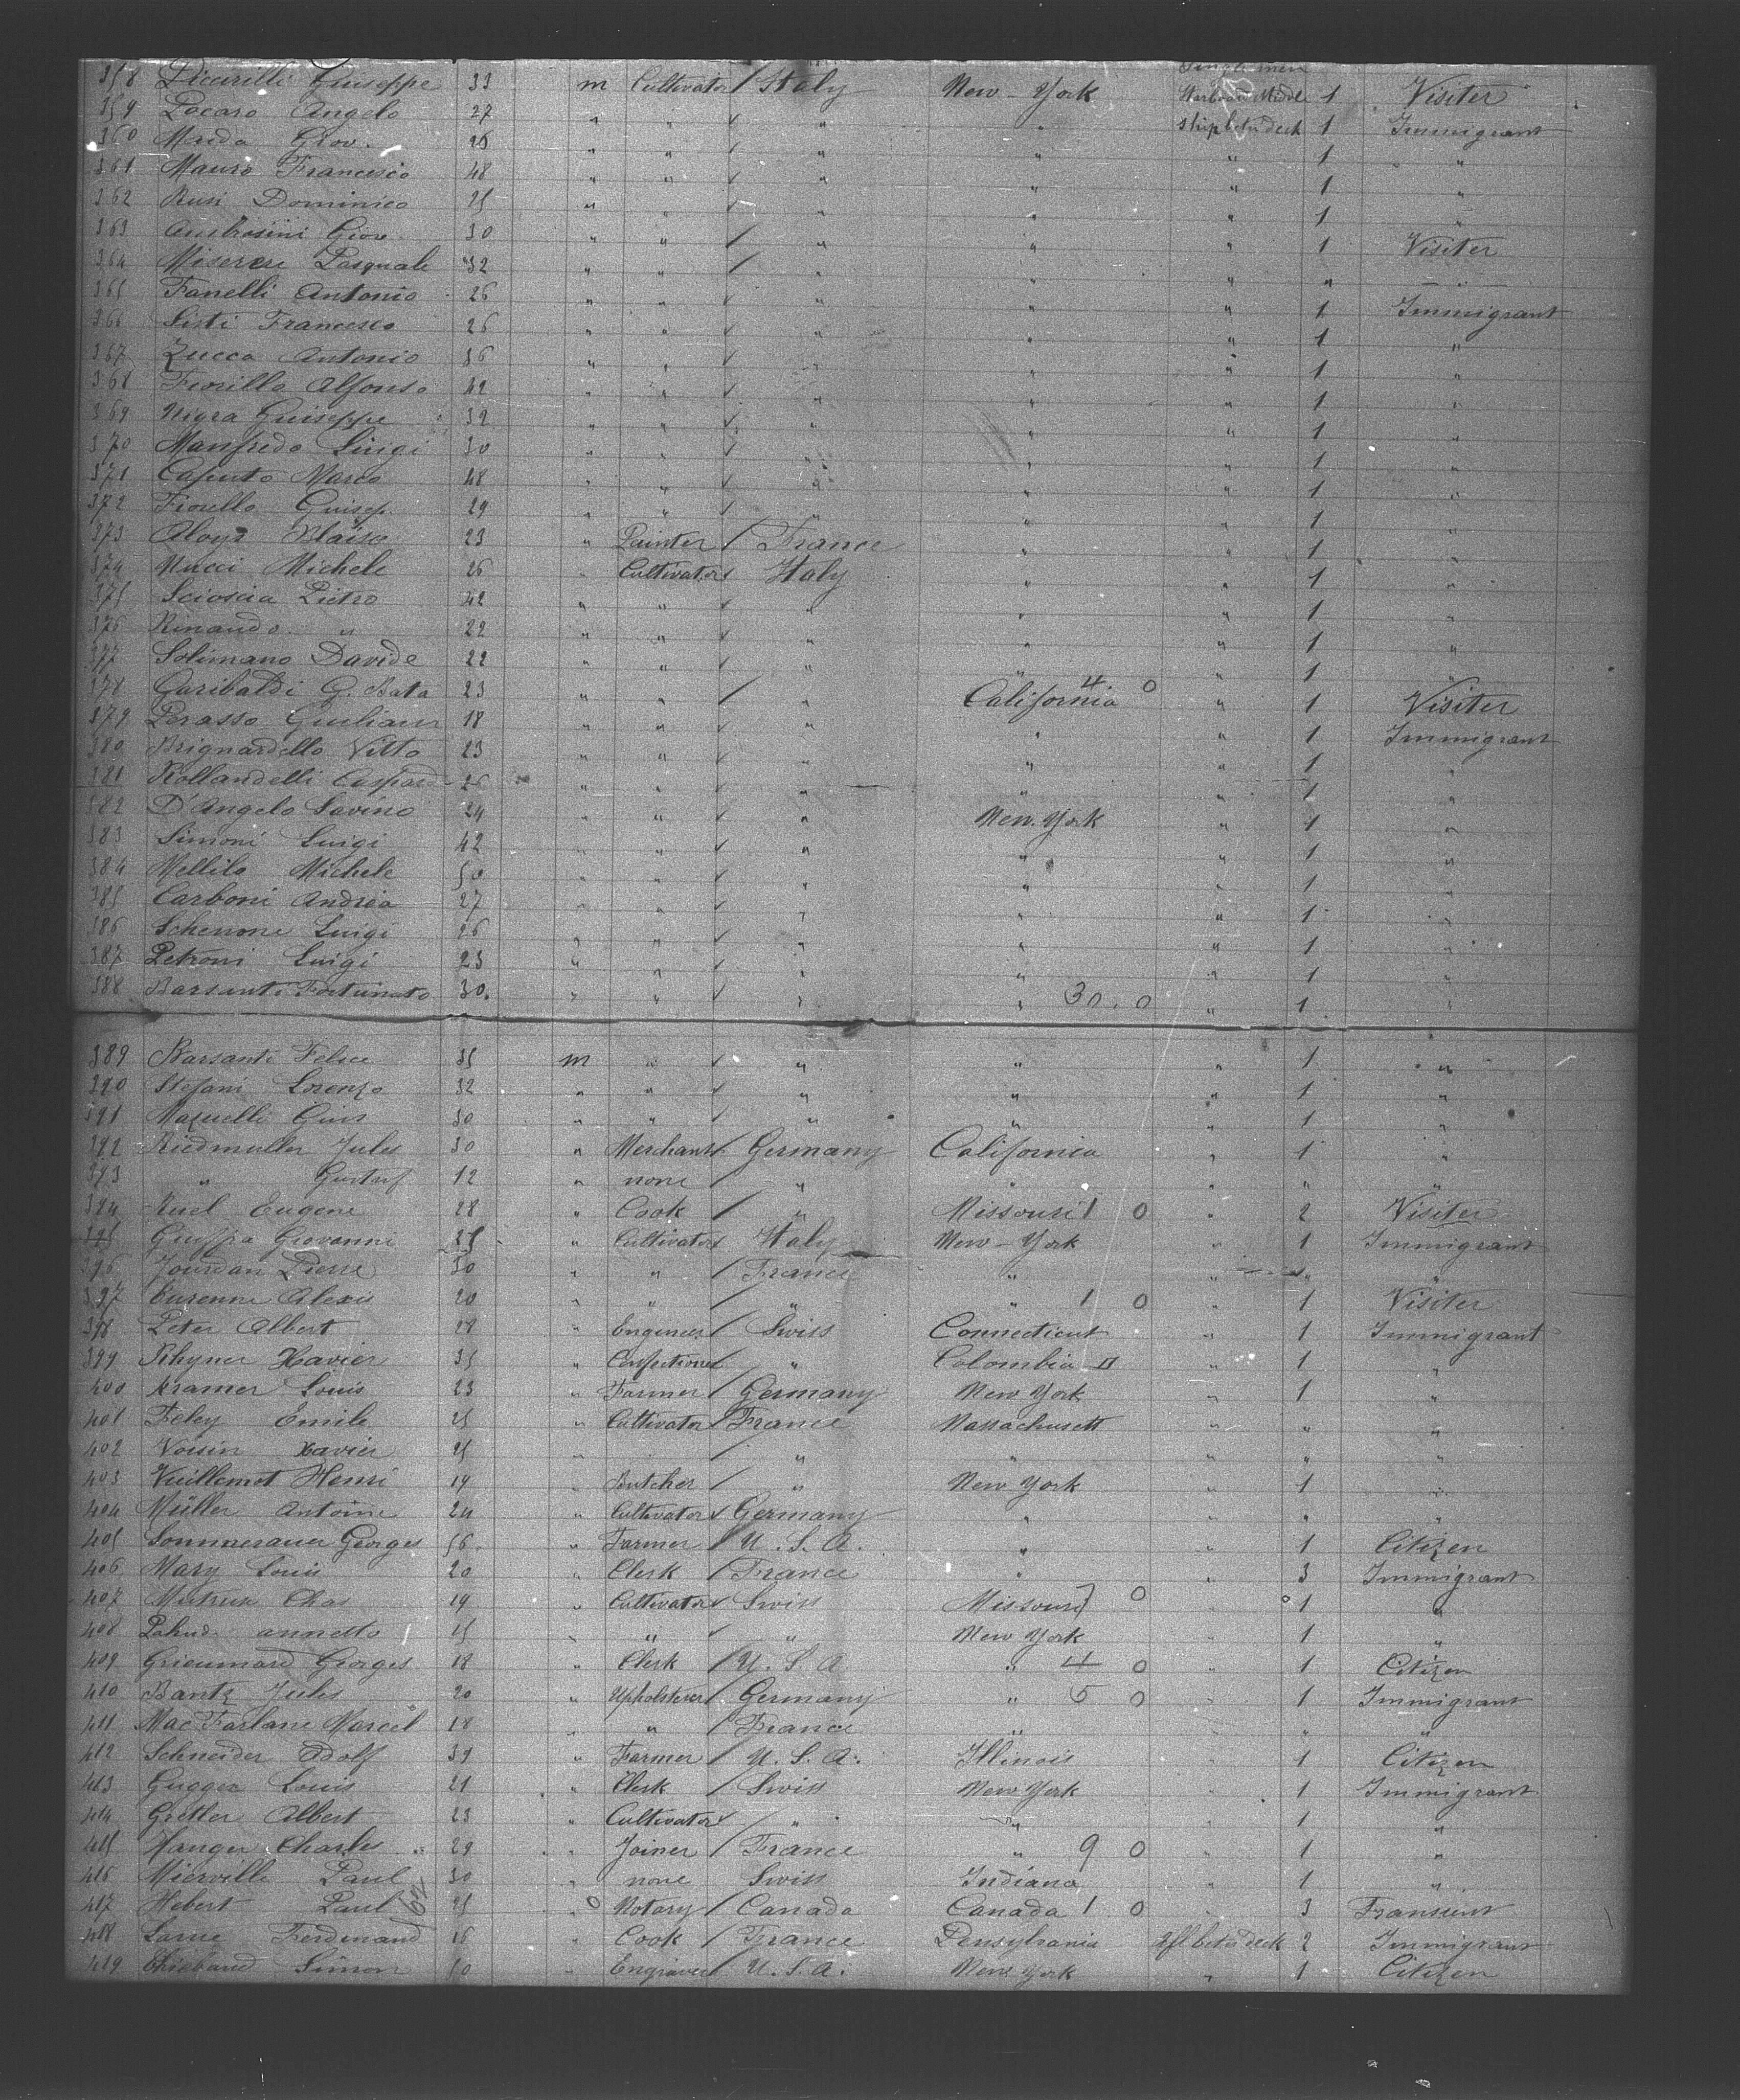 Single men
358 Piccirilli Guiseppe 33 m Cultivator / Italy New-York Starboard Middle 1 Visiter
359 Locaro Angelo 27 " " " " ship betw deck 1 Immigrant
360 Giov. 26 " " " " " 1 "
361 Mauro Francesco 48 " " " " " 1 "
362 Rusi Dominico 25 " " " " " 1 "
363 Ambrosini Giov. 30 " " / " " " 1 Visiter
364 Miserere Pasquale 32 " " / " " " " "
365 Fanelli Antonio 26 " " " " " 1 Immigrant
366 Sisti Francesco 26 " " " " " 1 "
367 Zucca Antonio 36 " " " " " 1 "
368 Fiorillo Alfonso 42 " " " " " 1 "
369 Nigra Guiseppe 32 " " " " " 1 "
370 Manfredo Luigi 30 " " " " " 1 "
371 Caputo Marco 48 " " " " " 1 "
372 Fiorello Guisep. 29 " " " " " 1 "
373 Aloys Blaise 23 " Painter / France " " 1 "
374 Nucci Michele 26 " Cultivator Italy " " 1 "
375 Scioscia Pietro 42 " " " " " 1 "
376 Rinando " 22 " " " " " 1 "
377 Solimano Davide 22 " " " " " 1 "
378 Garibaldi G. Bata 23 " " / " California 4 0 " 1 Visiter
379 Perasso Giuliam 18 " " " " " 1 Immigrant
380 Brignardello Vitto 23 " " " " " 1 "
381 Rollandelli Caspard 26 " " " " " 1 "
382 D'Angelo Savino 24 " " " New-York " 1 "
383 Simoni Luigi 42 " " " " " 1 "
384 Mellilo Michele 50 " " " " " 1 "
385 Carboni Andrea 27 " " " " " 1 "
386 Schenone Luigi 26 " " " " " 1 "
387 Petroni Luigi 23 " " " " " 1 "
388 Barsanti Fortunato 30. " " " " 30.0 " 1 "
389 Barsanti Felice 35 m " " " " 1 "
390 Stefani Lorenzo 32 " " " " " 1 "
391 Mazuelli Gius 30 " " " " " 1 "
392 Riedmuller Jules 30 " Merchant Germany California " 1 "
393 " Gustaf 12 " none / " " " " "
394 Eugene 28 " Cook / " Missouri 1 0 " 2 Visiter
395 Giuffra Giovanni 25 " Cultivator Italy New-York " 1 Immigrant
396 Jourdan Pierre 30 " " / France " " " "
397 Eurenne Alexis 20 " " / " " 1 0 " 1 Visiter
398 Peter Albert 28 " Engeneer / Swiss Connecticut " 1 Immigrant
399 Rhyner Xavier 35 " Confectioner " Colombia D " 1 "
400 Kramer Louis 23 " Farmer / Germany New York " 1 "
401 Feley Emile 25 " Cultivator / France Massachusett " " "
402 Voisin Xavier 25 " " / " " " " "
403 Vuillemot Henri 19 " Butcher / " New York " 1 "
404 Müller Antoine 24 " Cultivator Germany " " " "
405 Sommerauer Georges 56 " Farmer / U.S.A. " " 1 Citizen
406 Mary Louis 20 " Clerk / France " " 3 Immigrant
407 Chas 19 " Cultivator Swiss Missouri 7 0 " 1 "
408 Pahud annetto 25 " " " New York " 1 "
409 Grieumard Georges 18 " Clerk / U.S.A " 4 0 " 1 Citizen
410 Bantz Jules 20 " Upholsterer Germany " 5 0 " 1 Immigrant
411 Mac Farlane Marcel 18 " " / France " " " "
412 Schneider Adolf 39 " Farmer / U.S.A. Illinois " 1 Citizen
413 Gugger Louis 21 " Clerk / Swiss New York " 1 Immigrant
414 Grether Albert 23 " Cultivator " " " 1 "
415 Hanger Charles 29 " Joiner / France " 9 0 " 1 "
416 Mierville Paul 30 " none Swiss Indiana " 1 "
417 Hebert Paul 25 " 0 Notary / Canada Canada 1 0 " 3 Transient
418 Larue Ferdinand 16 " Cook / France Pensylvania Aft betw deck 2 Immigrant
419 Simon 60 " Engraver / U.S.A. New York " 1 Citizen